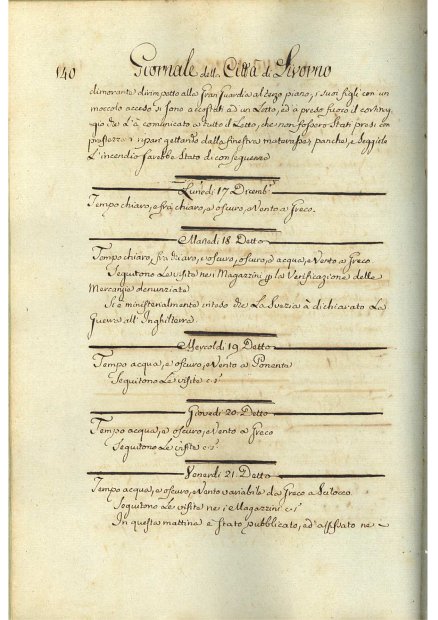 140 Giornale della Città di Livorno
dimorante dirimpetto alla Gran Guardia al terzo piano, i suoi figli con un
moccolo acceso si sono accostati ad un Letto, ed à preso fuoco il
che si è comunicato a tutto il Letto, che non fossero stati presi con
prestezza i ripari gettando dalla finestra materasse, panche, e
L'incendio sarebbe stato di conseguenza
Lunedi 17 Dicembe
Tempo chiaro, e frà chiaro, e oscuro, e Vento a Greco.
Martedi 18 Detto
Tempo chiaro, frà chiaro, e oscuro, oscuro, e acqua, e Vento a Greco
Seguitono Le visite nei Magazzini p la Verificazione delle
Mercanzie denunziate
Si è ministerialmente inteso che La Svezia à dichiarato La
Guerra all'Inghilterra
Mercoldi 19 Detto
Tempo acqua, e oscuro, e Vento a Ponente
Seguitono Le visite
Giovedi 20 Detto
Tempo acqua, e oscuro, e Vento a Greco
Seguitono Le visite
Venerdi 21 Detto
Tempo acqua, e oscuro, e Vento variabile da Greco a Scilocco
Seguitono Le visite nei Magazzini
In questa mattina è stato pubblicato, ed affissato ne-